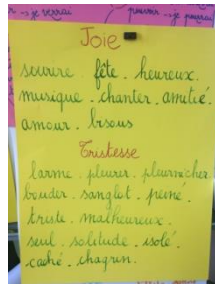 → je verrai
pouvoir → je pourrai
Joie
sourire . fête . heureux.
musique . chanter . amitié.
amour . bisous
Tristesse
larme . pleurer . pleurnicher.
bouder . sanglot . peiné.
triste . malheureux.
seul . solitude . isolé.
caché . chagrin.